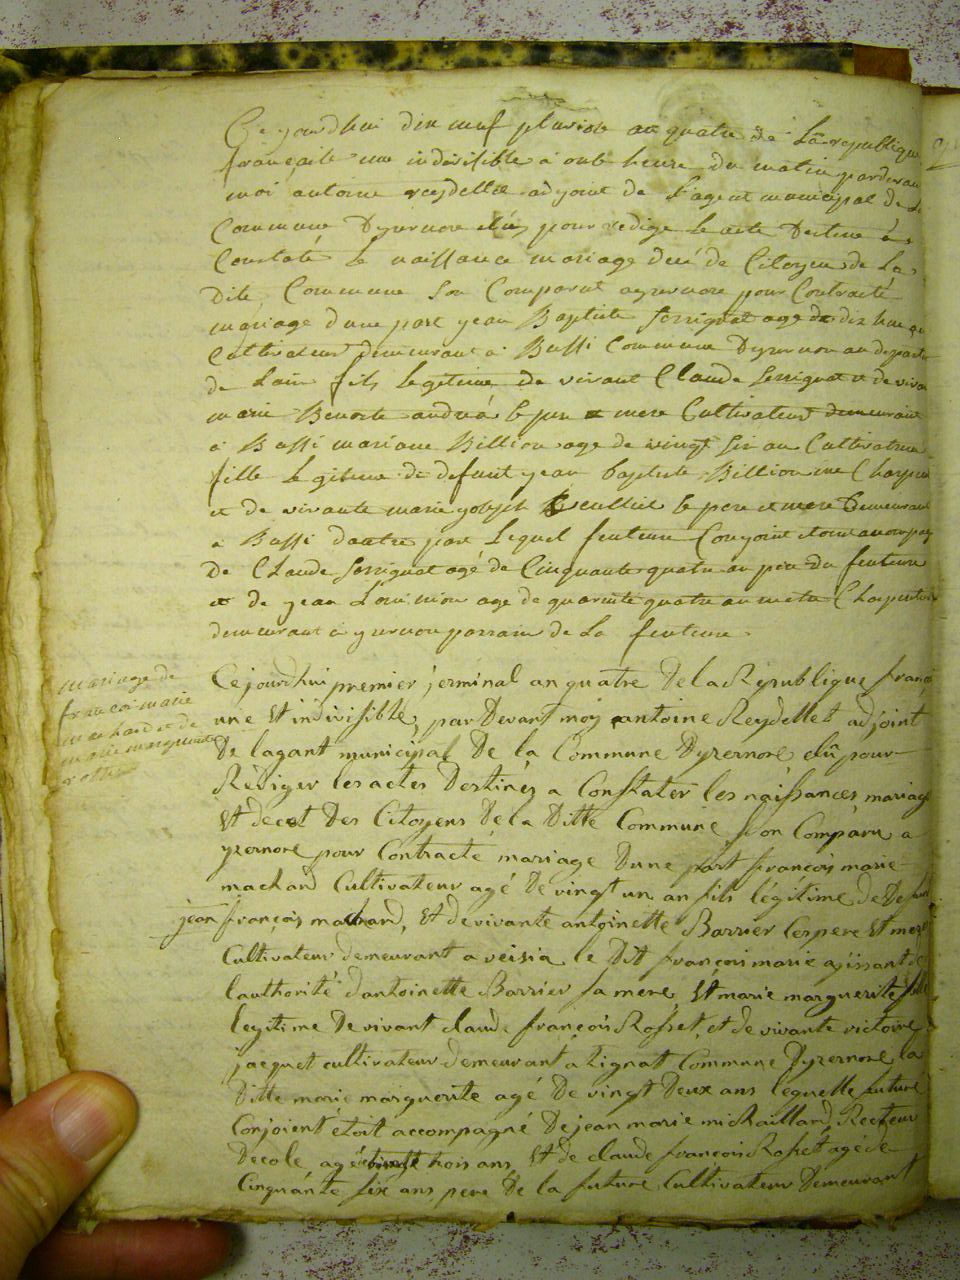 Ce yourdhui dix neuf pluviose an quatre de La republique
française une indivisible a onb heure du matin pardevan
moi antoine reydellet adjoint de l'agent municipal de La
Commune Dysernore élus pour redige le acte Destine a
Constaté le naissance mariage decé de Citoyen de La
Dite Commune Son Comparut aysernore pour Contracté
mariage dune part yean Baptiste Serrignat age de dix huit
Cultivateur demeurant a Bussi Commune Dysernon au departe
de Lain fils Legitime de vivant Claude Serrignat et de viva
marie Benoite andréa le pere et mere Cultivateur demeurant
a Bussi mariane Billion age de vingt six an Cultivatrice
fille Legitime de defunt yean baptiste Billion me Charpen
et de vivante marie yoseph le pere et mere Demeurant
a Bussi dautre part Lequel feuteure Conjoint etoit accompag
de Claude Serrignat agé de Cinquante quatre an pere du feuteure
et de yean age de quarente quatre an metre Charpentie
demeurant a ysernore parrain de La feuteure.
mariage de
francoi marie
machard et de
marie marguerite
rosset
Cejourdhui premier jerminal an quatre De la République franç
une Et indivisible, par Devant moy antoine Reydellet adjoint
De lagant municipal De la Commune Dyzernore élû pour
Rédiger les actes Destinés a Constater les naissances mariag
Et decet Des Citoyens De la Ditte Commune Son Comparu a
yzernore pour Contracté mariage Dune part françois marie
machard Cultivateur agé De vingt un an fils légitime de Defunt
jean françois machard, Et de vivante antoinette Barrier les pere Et mere
Cultivateur demeurant a veisia le Dit françois marie agissant de
lauthorité dantoinette Barrier sa mere, Et marie marguerite fille
legitime De vivant claude françois Rosset, et de vivante victoire
jacquet cultivateur demeurant a Lignat Commune Dyzernore la
Ditte marie marguerite agé De vingt Deux ans lequelle future
Conjoient étoit accompagné De jean marie michaillard Recteur
Decole, agé trois ans, Et de claude françois Rosset agé de
Cinquante six ans pere De la future Cultivateur Demeurant